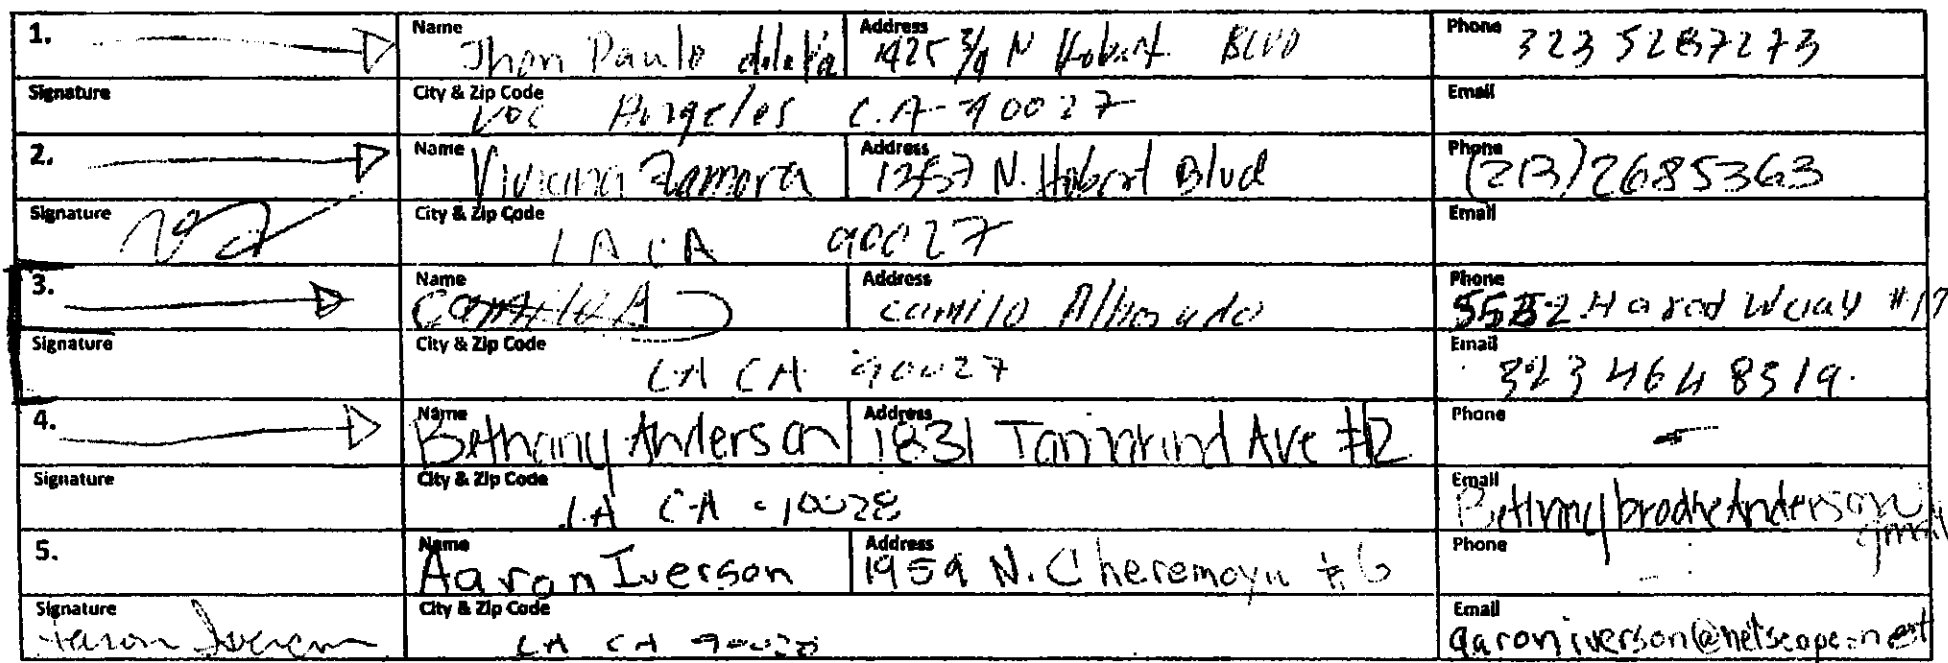 1. Name Jhon Paulo Address 1425 3/4 N Hobart BLVD Phone 323 5287273
Signature City & Zip Code Angeles C.A 90027 Email
2. Name Viviana Zamora Address N. Hobart Blvd Phone (213) 2685363
Signature City & Zip Code LA CA 90027 Email
3. Name Camilo A Address camilo Phone 5552 Harold Way #17
Signature City & Zip Code LA CA 90027 Email 323 464 8519.
4. Name Bethany Anderson Address 1831 Ave #12 Phone -
Signature City & Zip Code LA CA 90028 Email gmail
5. Name Aaron Iverson Address 1959 N. Cheremoya #6 Phone
Signature Aaron Iverson City & Zip Code LA CA 90028 Email aaroniverson@netscape.net